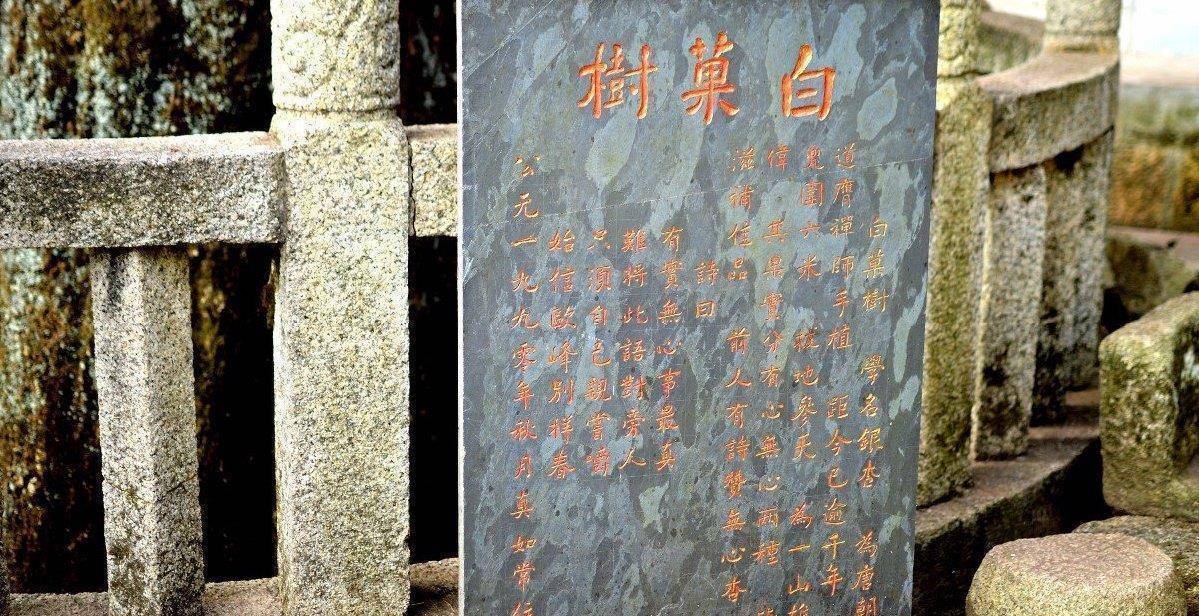 白菓樹
白菓樹 學名銀杏 為唐朝
道膺禪師手植 距今已逾千年
圍六米 地參天 為一山
偉 其果實分有心無心兩種
滋補佳品 前人有詩贊無心杏
詩曰
有實無心事最真
難將此語對旁人
只須自己親嘗嚼
始信歐峰別樣春
公元一九九零年秋月真如常住